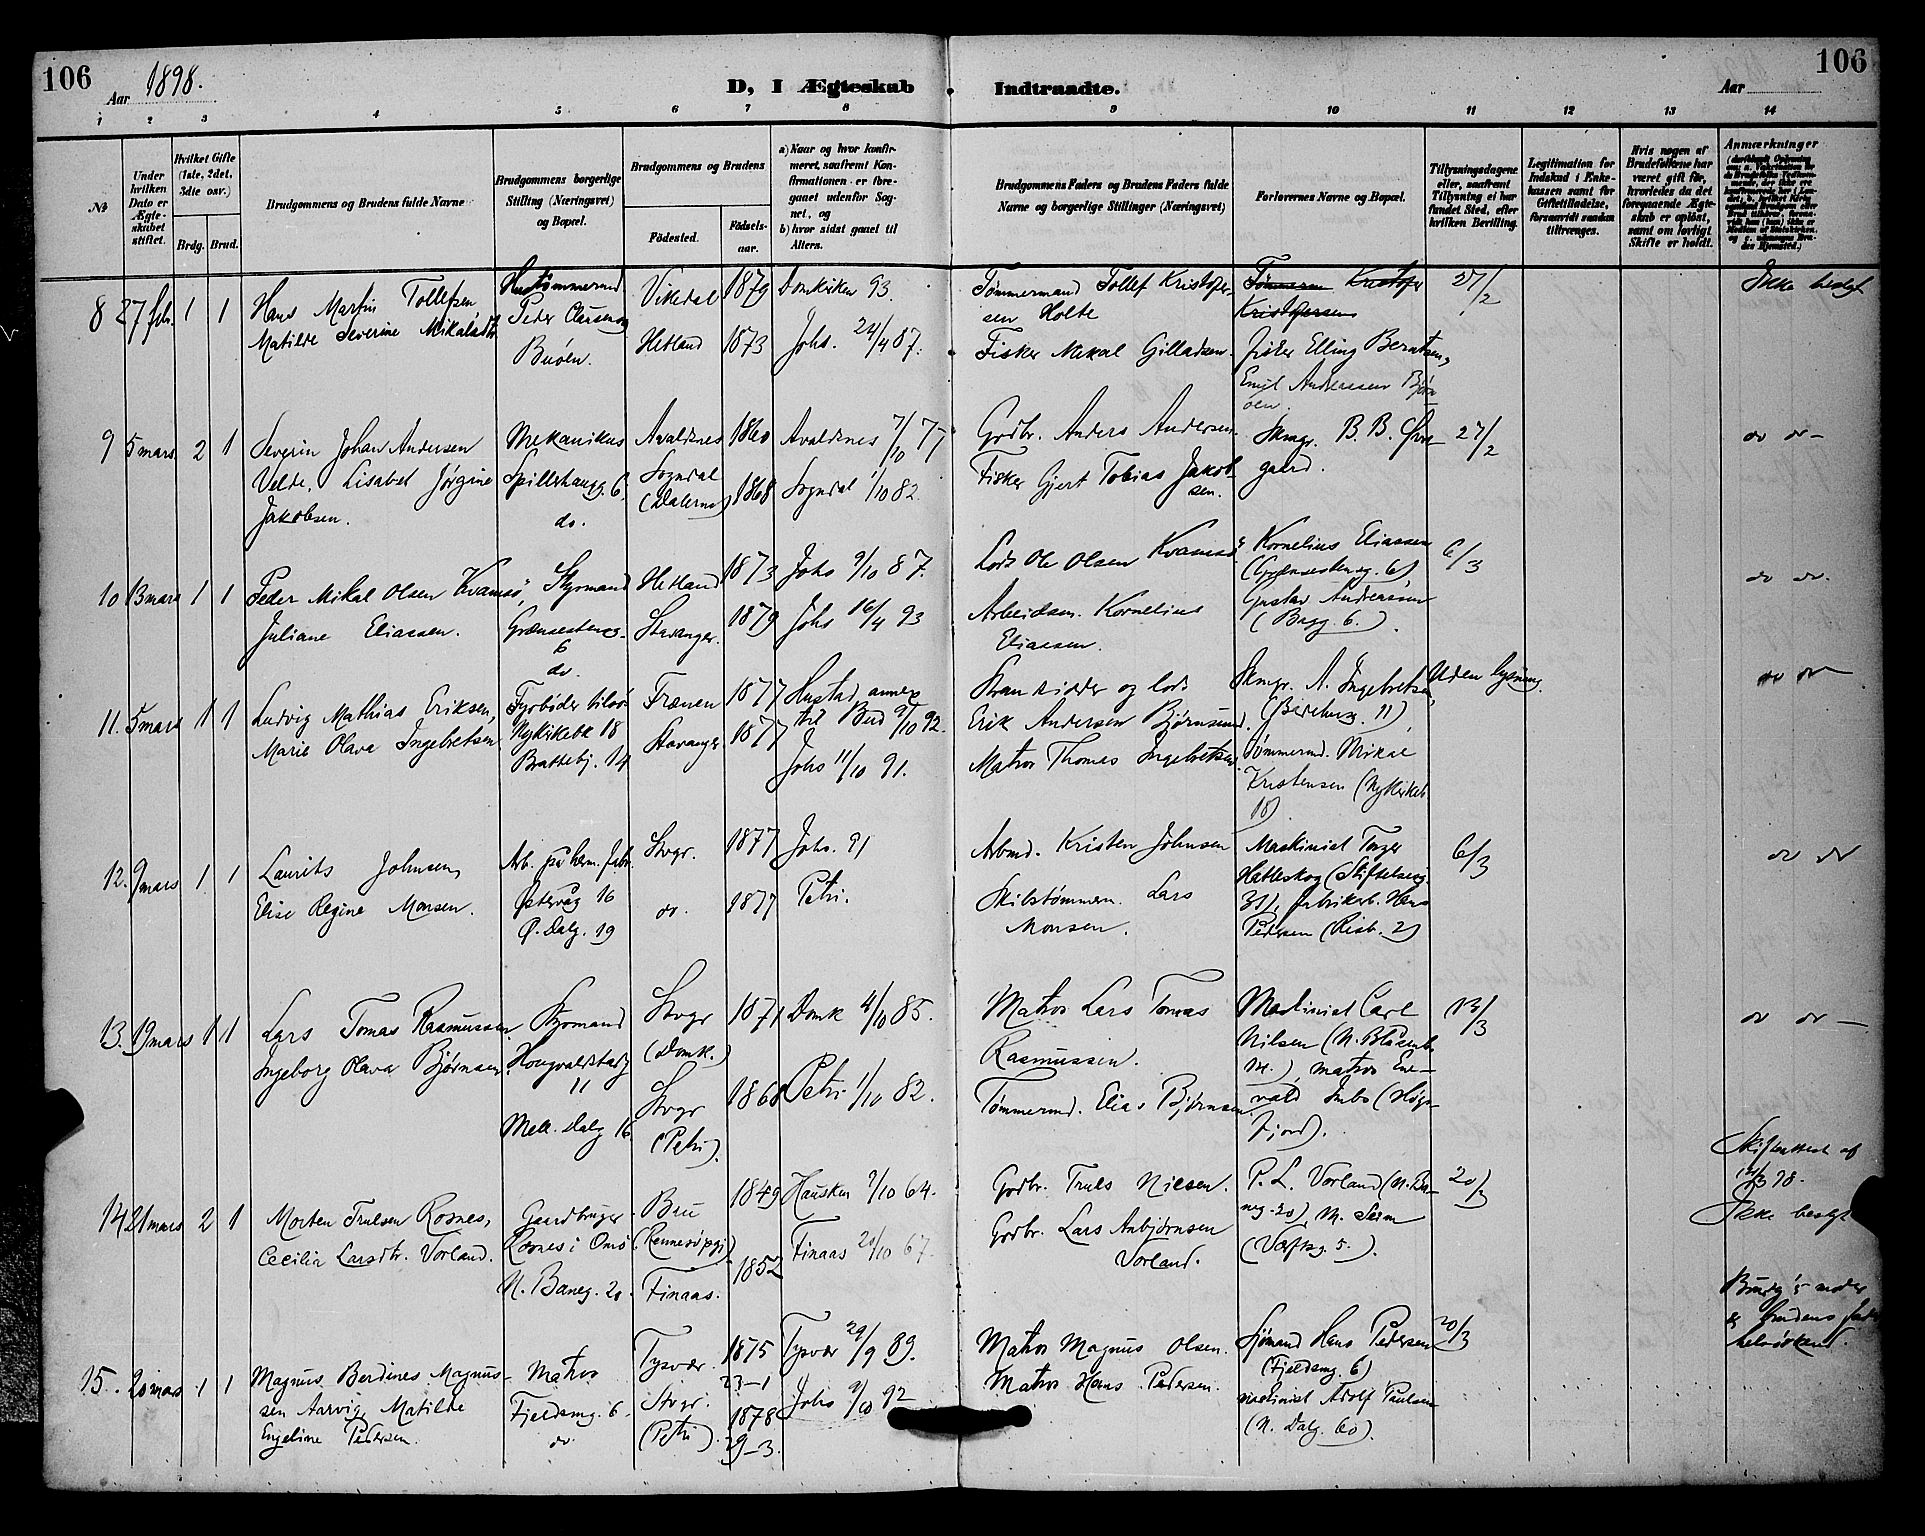 106
Aar 1898.
D, I Ægteskab
Indtraadte.
Aar
106
1 2 3 4 5 6 7 8 9 10 11 12 13 14
№
Under hvilken Dato er Ægteskabet stiftet.
Hvilket Gifte (1ste, 2det, 3die osv.)
Brdg. Brud.
Brudgommens og Brudens fulde Navne
Brudgommens borgerlige Stilling (Næringsvei) og Bopæl.
Brudgommens og Brudens
Fødested.
Fødselsaar.
a) Naar og hvor konfirmeret, saafremt Konfirmationen er foregaaet udenfor Sognet, og
b) hvor sidst gaaet til Alters.
Brudgommens Faders og Brudens Faders fulde Navne og borgerlige Stillinger (Næringsvei)
Forlovernes Navne og Bopæl.
Tillysningsdagene eller, saafremt Tillysning ei har fundet Sted, efter hvilken Bevilling.
Legitimation for Indskud i Enkekassen samt for Giftetilladelse, forsaavidt saadan tiltrænges.
Hvis nogen af Brudefolkene har været gift før, hvorledes da det foregaaende Ægteskab er opløst, samt om lovligt Skifte er holdt.
Anmærkninger
8 27 feb. 1 1
Hans Martin Tollefsen
Matilde Severine Mikalsdtr
Peder Clausensg
Buøen.
Vikedal 1879 Domkirken 93.
Hetland 1873 Johs. 24/4 87.
Tømmermand Tollef Kristofersen Holte
Fisker Mikal Gilladsen.
Kristofer
Kristofersen
fisker Elling Berntsen,
Emil Andreasen Bjørnøen.
27/2
Ikke beslgt
9 5 mars. 2 1
Severin Johan Andersen
Velde, Lisabet Jørgine
Jakobsen.
Mekanikus
Spilderhaugg. 6.
do.
Avaldsnes 1860 Avaldsnes 7/10 77
Sogndal
(Dalerne) 1868 Sogndal 1/10 82.
Grdbr. Anders Andersen.
Fisker Gjert Tobias Jakobsen.
Skmgr. B. B. Øvregaard.
27/2
do do
10 13 mars 1 1
Peder Mikal Olsen Kvamsø,
Juliane Eliassen.
Styrmand
Grænsestensg.
6
do.
Hetland 1873 Johs 9/10 87.
Stavanger. 1879 Johs 16/4 93
Lods Ole Olsen Kvamsø
Arbeidsm. Kornelius
Eliassen.
Kornelius Eliassen
(Grænsestensg. 6)
Gustav Andreassen
(Bagg. 6.)
6/3
do do.
11. 5 mars 1 1
Ludvig Mathias Eriksen,
Marie Olava Ingebretsen
Fyrbøder
Nykirkebk 18
Brattebj. 14
Frænen 1877 Hustad annex
til Bud 9/10 92.
Stavanger 1877
Johs 11/10 91.
Strandsidder og lods
Erik Andersen Bjørnsund.
Matros Thomas Ingebretsen
Skmgr. A. Ingebretsen
(Bereberg. 11)
Tømmermd. Mikal
Kristensen (Nykirkeb.
18)
Uden lysning.
do do
12. 9 mars 1 1
Laurits Johnsen,
Elise Regine Monsen.
Arb. på herm. fabr.
Østervåg 16
Ø. Dalg. 19
Stvgr. 1877 Johs. 91
do. 1877 Petri.
Arbmd. Kristen Johnsen
Skibstømmerm. Lars
Monsen.
Maskinist Torger
Hatleskog (Stiftelsesg.
31), fabrikarb. Hans
Pedersen (Risb. 2)
6/3
do do
13. 19 mars 1 1
Lars Tomas Rasmussen
Ingeborg Olava Bjørnsen
Styrmand
Hougvaldstadg
11
Mell. dalg 16
Stvgr
(Domk.)
1871 Domk 4/10 85.
Stvgr
(Petri). 1868 Petri 1/10 82.
Matros Lars Tomas
Rasmussen.
Tømmermd. Elias Bjørnsen
Maskinist Carl
Nilsen (N. Blåsenb.
14.), matros Enevald
Imbs (Høgsfjord).
13/3
do do
14 21 mars 2 1
Morten Trulsen Rosnes,
Cecilia Larsdtr. Vorland.
Gaardbruger
Rosnes i Omø
N. Baneg. 20.
Bru
(Rennesø pgj)
Finaas.
1849 Hausken 9/10 64.
1852 Finaas 20/10 67.
Grdbr. Truls Nielsen.
Grdbr. Lars Anbjørnsen
Vorland.
P. L. Vorland (N. Baneg. 20), M. Seim
(Værftsg. 5.).
20/3
Skifteattest af
Ikke beslgt
15. 20 mars 1 1
Magnus Berdines Magnussen Aarvig, Matilde
Engeline Pedersen.
Matros
Fjeldsmg. 6
do.
Tysvær.
Stvgr.
(Petri).
1875
23-1
1878
29-3.
Tysvær 29/9 89.
Johs 9/10 92
Matros Magnus Olsen.
Matros Hans Pedersen.
Sjømand Hans Pedersen
(Fjeldsmg. 6)
maskinist Adolf Paulsen
(N. Dalg. 60).
20/3
Brudg's moder
er brudens